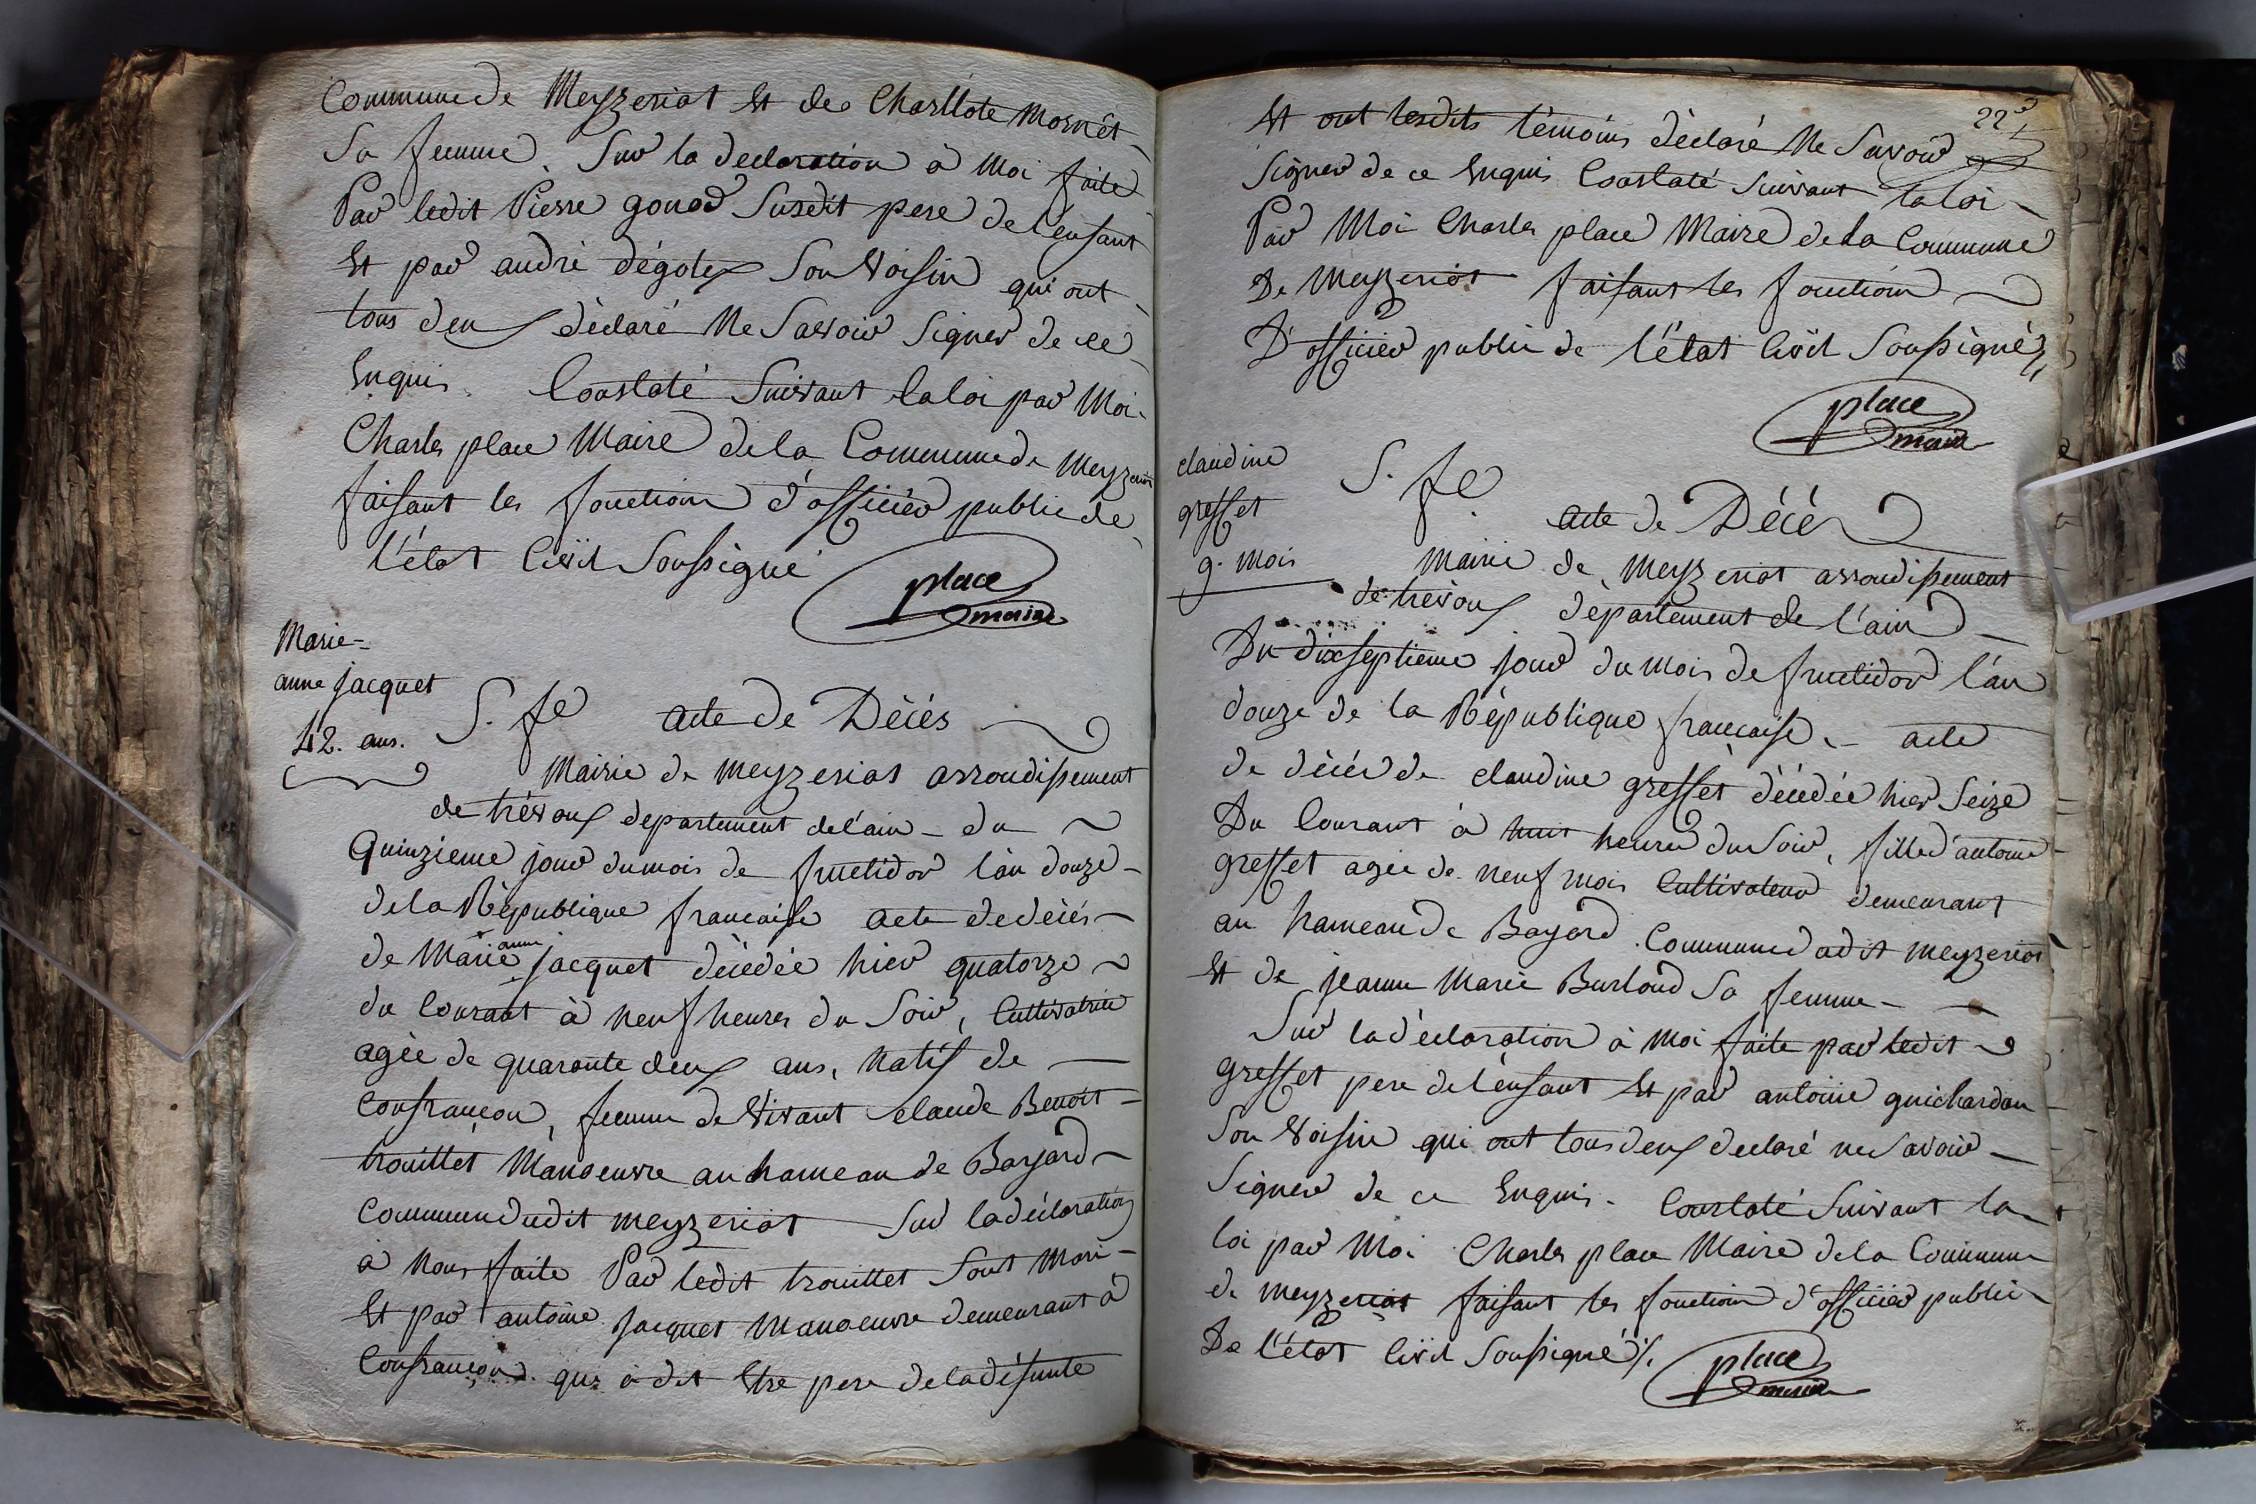 Commune de Meyzeriat Et de Charllote Mornêt
Sa femme. Sur la declaration à Moi faite
Par ledit Pierre gonod Susdit pere de l'enfant
Et par andrè dégolex Son Voisin qui ont
tous deux dèclaré Ne Savoir Signer de ce
Enquis. Constaté Suivant la loi par Moi
Charles place Maire de la Commune de Meyzeriat
faisant les fonction d'officièr public de
l'étât Civil Soussigné
place
maire
Marie-
anne jacquet
42. ans.
S. fe acte de Dècés
Mairie de meyzeriat arrondissement
de trévoux departement de l'ain - du
Quinzieme jour du mois de fructidor l'an douze
de la Rèpublique francaise acte de dècés
de Marie anne jacquet dècedèe hier quatorze
du Courant à neuf heures du Soir, Cultivatrice
agèe de quarante deux ans, Natif de
Confrançon, femme de Vivant claude Benoit
trouillèt Manoeuvre au hameau de Bayard
Commune dudit meyzeriat Sur la dèclaration
à Nous faite Par ledit trouillet Sont Mari
Et par antoine jacquet Manoeuvre demeurant à
Confrançon qui à dit Etre pere de la défunte
223
Et ont lesdits tèmoins dèclaré Ne Savoir
Signer de ce Enquis Constaté Suivant la loi
Par Moi Charles place Maire de la Commune
De Meyzeriat faisant les fonction
D'officièr public de l'état Civil Soussignè
place
maire
claudine
gresset
9. mois
S. fe
acte de Dècés
Mairie de Meyzeriat arrondissement
de trèvoux dèpartement de l'ain
Du dixseptieme jour du mois de fructidor l'an
douze de la Rèpublique francaise. acte
de dècés de claudine gressèt dècedée hier Seize
Du Courant à huit heures du Soir, fille d'antoine
gresset agèe de neuf mois Cultivateur demeurant
au hameau de Bayard Commune dudit Meyzeriat
Et de jeanne Marie Burtoud Sa femme
Sur la dèclaration à Moi faite par ledit
gresset pere de l'enfant Et par antoine guichardon
Son Voisin qui ont tous deux declaré ne Savoir
Signer de ce Enquis. Constaté Suivant la
loi par Moi Charles place Maire de la Commune
de meyzeriat faisant les fonction d'officièr public
De l'étât Civil Soussigné
place
maire